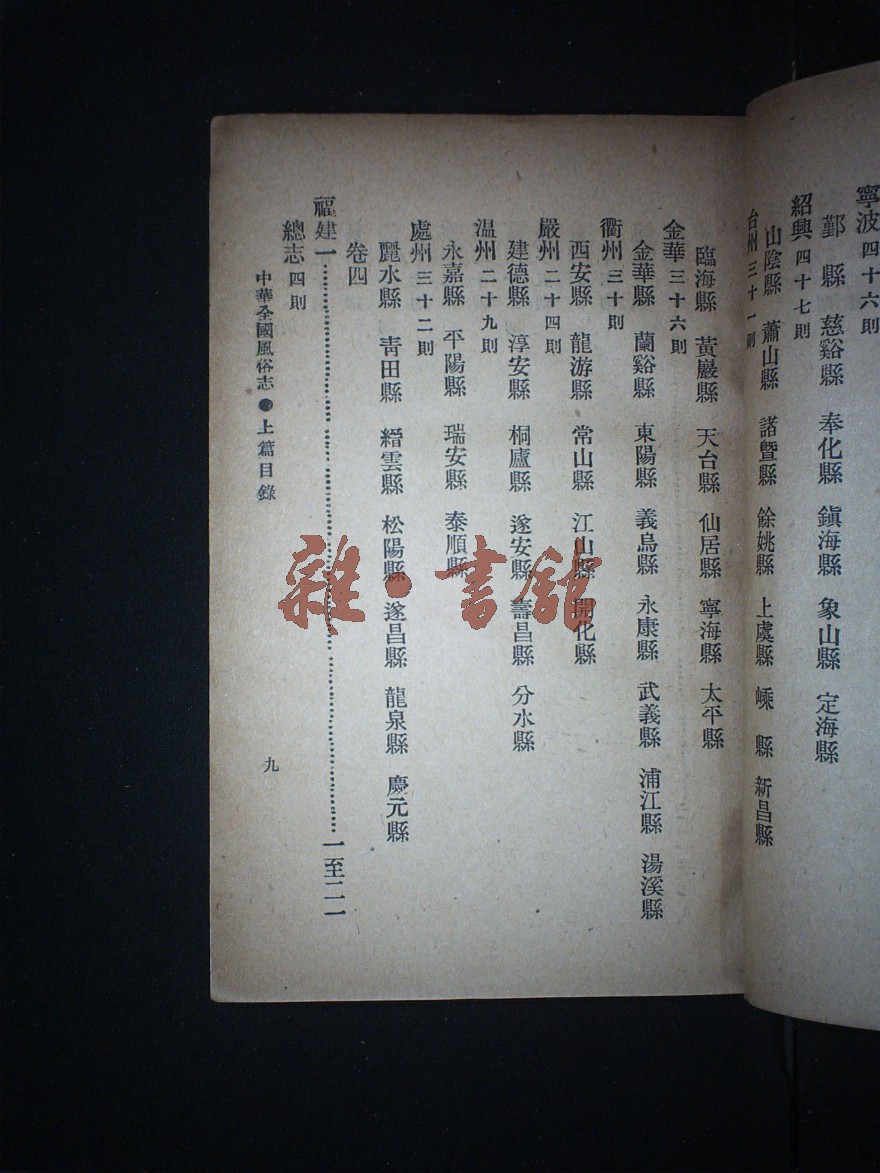 寧波 四十六則
鄞縣 慈谿縣 奉化縣 鎭海縣 象山縣 定海縣
紹興 四十七則
山陰縣 蕭山縣 諸暨縣 餘姚縣 上虞縣 嵊縣 新昌縣
台州 三十一則
臨海縣 黃巖縣 天台縣 仙居縣 寧海縣 太平縣
金華 三十六則
金華縣 蘭谿縣 東陽縣 義烏縣 永康縣 武義縣 浦江縣 湯溪縣
衢州 三十則
西安縣 龍游縣 常山縣 江山縣 開化縣
嚴州 二十四則
建德縣 淳安縣 桐廬縣 遂安縣 壽昌縣 分水縣
温州 二十九則
永嘉縣 平陽縣 瑞安縣 泰順縣
處州 三十二則
麗水縣 靑田縣 縉雲縣 松陽縣 遂昌縣 龍泉縣 慶元縣
卷四
福建一……一至二一
總志 四則
中華全國風俗志●上篇目錄
九
雜·書館